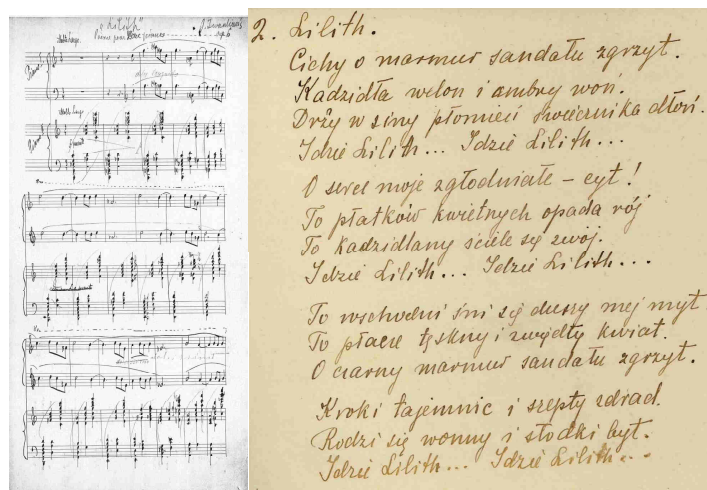 „Lilith”
2. Lilith.
Cichy o marmur sandału zgrzyt.
Kadzidła welon i ambry woń.
Drży w siny płomień świecznika dłoń.
Idzie Lilith... Idzie Lilith...
O serce moje zgłodniałe – cyt!
To płatków kwietnych opada rój
To kadzidlany ściele się zwój.
Idzie Lilith... Idzie Lilith...
To wschodni śni się duszy mej myt
To płacze tęskny i zwiędły kwiat.
O czarny marmur sandału zgrzyt.
Kroki tajemnic i szepty zdrad.
Rodzi się wonny i słodki byt.
Idzie Lilith... Idzie Lilith...